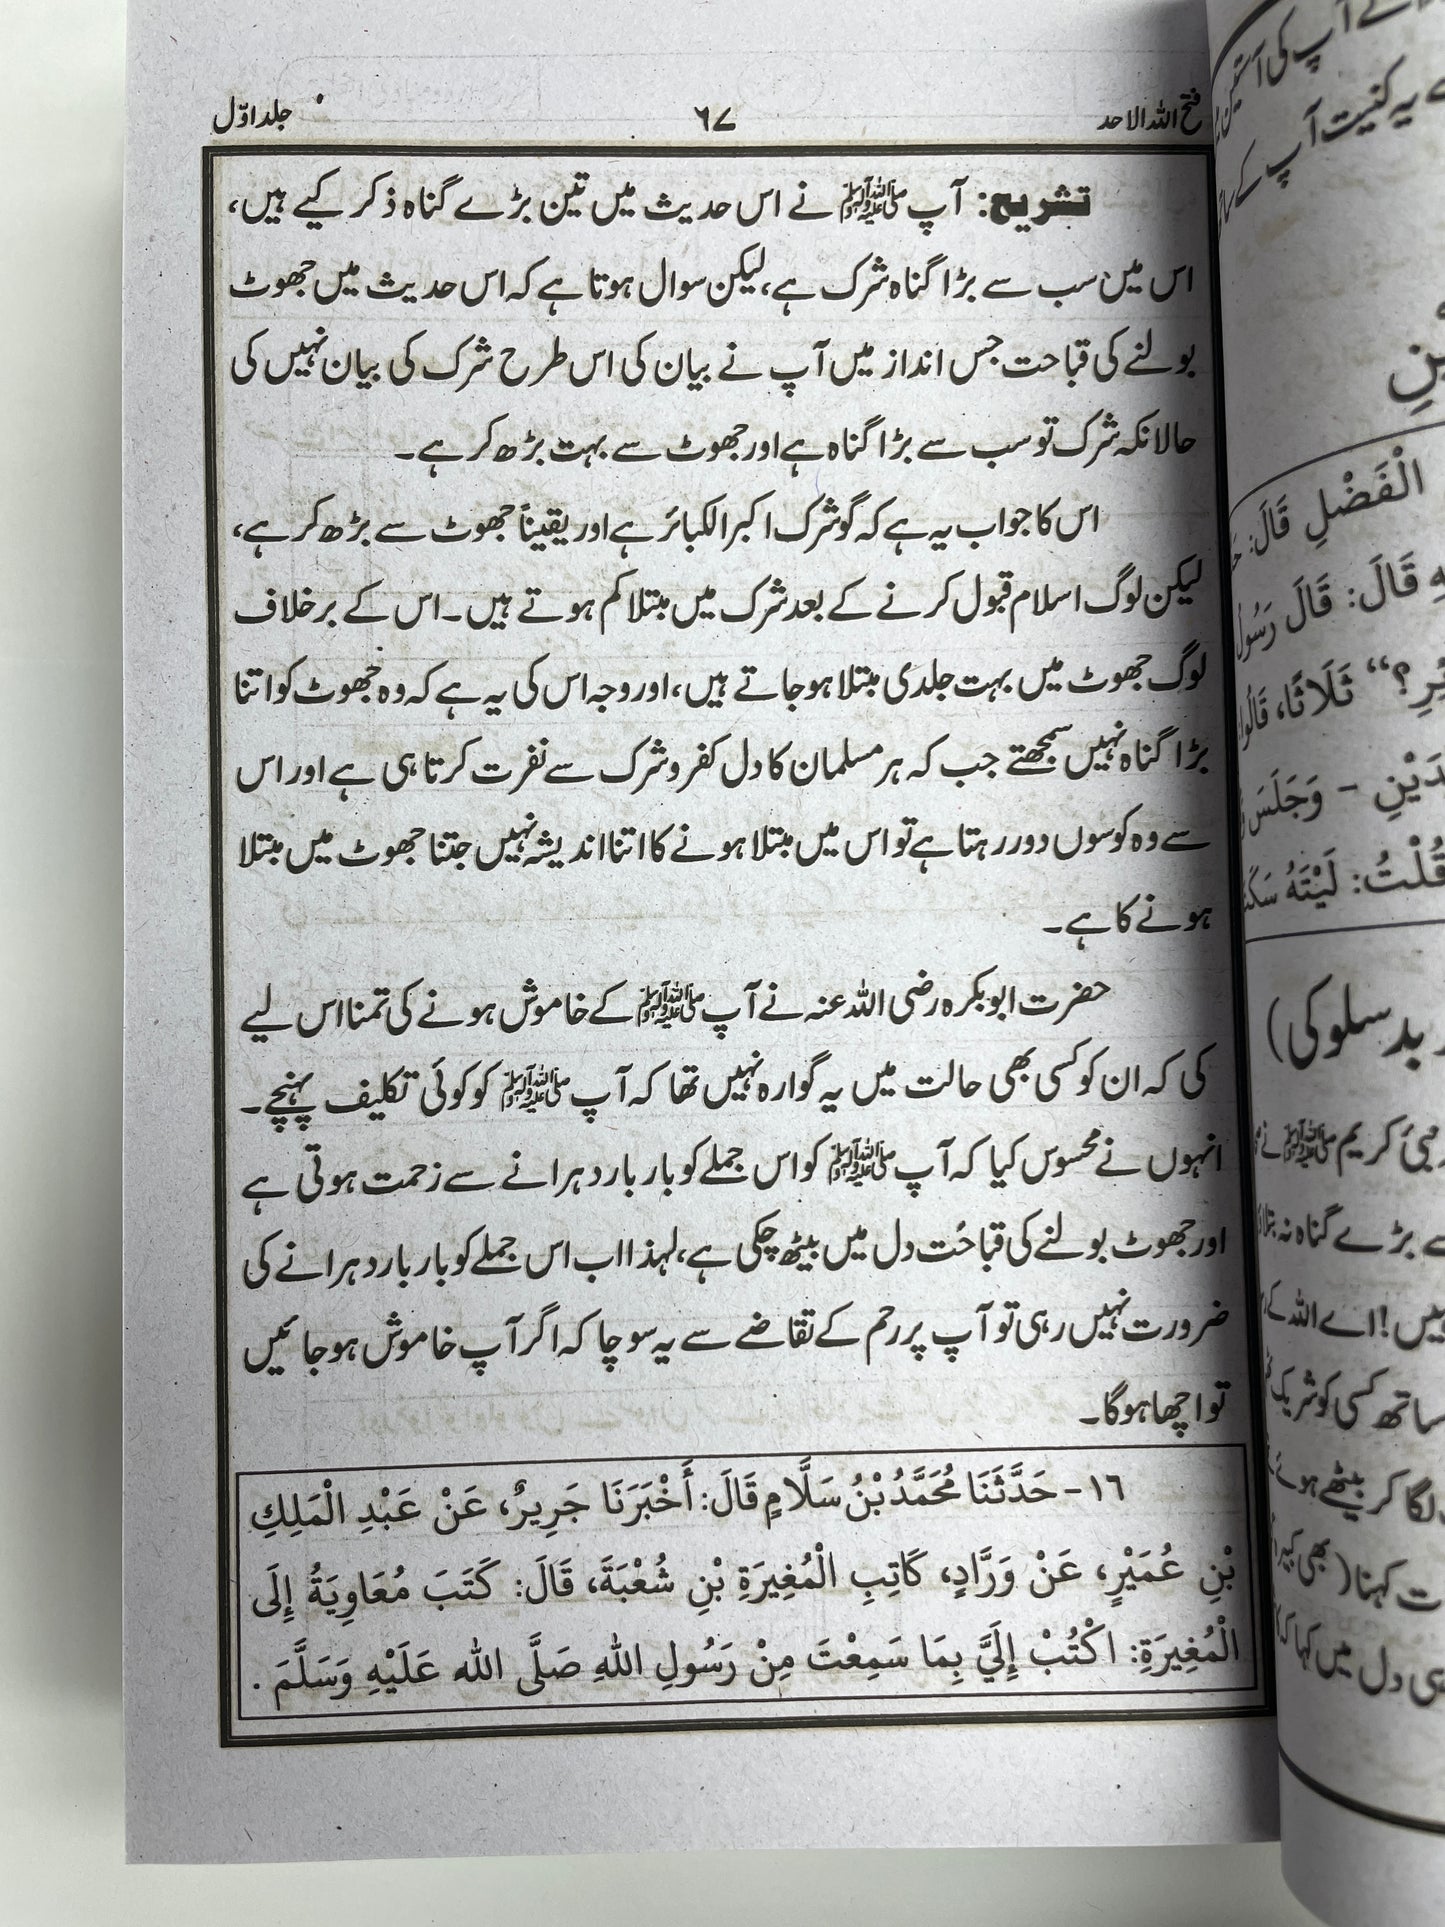 فتح اللہ الاحد ۶۷ جلد اوّل
تشریح: آپ ﷺ نے اس حدیث میں تین بڑے گناہ ذکر کیے ہیں،
اس میں سب سے بڑا گناہ شرک ہے، لیکن سوال ہوتا ہے کہ اس حدیث میں جھوٹ
بولنے کی قباحت جس انداز میں آپ نے بیان کی اس طرح شرک کی بیان نہیں کی
حالانکہ شرک تو سب سے بڑا گناہ ہے اور جھوٹ سے بہت بڑھ کر ہے۔
اس کا جواب یہ ہے کہ گو شرک اکبر الکبائر ہے اور یقیناً جھوٹ سے بڑھ کر ہے،
لیکن لوگ اسلام قبول کرنے کے بعد شرک میں مبتلا کم ہوتے ہیں۔ اس کے برخلاف
لوگ جھوٹ میں بہت جلدی مبتلا ہوجاتے ہیں، اور وجہ اس کی یہ ہے کہ وہ جھوٹ کو اتنا
بڑا گناہ نہیں سمجھتے جب کہ ہر مسلمان کا دل کفر و شرک سے نفرت کرتا ہی ہے اور اس
سے وہ کوسوں دور رہتا ہے تو اس میں مبتلا ہونے کا اتنا اندیشہ نہیں جتنا جھوٹ میں مبتلا
ہونے کا ہے۔
حضرت ابوبکرہ رضی اللہ عنہ نے آپ ﷺ کے خاموش ہونے کی تمنا اس لیے
کی کہ ان کو کسی بھی حالت میں یہ گوارہ نہیں تھا کہ آپ ﷺ کو کوئی تکلیف پہنچے۔
انہوں نے محسوس کیا کہ آپ ﷺ کو اس جملے کو بار بار دہرانے سے زحمت ہوتی ہے
اور جھوٹ بولنے کی قباحت دل میں بیٹھ چکی ہے، لہٰذا اب اس جملے کو بار بار دہرانے کی
ضرورت نہیں رہی تو آپ پر رحم کے تقاضے سے یہ سوچا کہ اگر آپ خاموش ہوجائیں
تو اچھا ہوگا۔
۱٦- حَدَّثَنَا مُحَمَّدُ بْنُ سَلَّامٍ قَالَ: أَخْبَرَنَا جَرِيرٌ، عَنْ عَبْدِ الْمَلِكِ
بْنِ عُمَيْرٍ، عَنْ وَرَّادٍ، كَاتِبِ الْمُغِيرَةِ بْنِ شُعْبَةَ، قَالَ: كَتَبَ مُعَاوِيَةُ إِلَى
الْمُغِيرَةِ: اكْتُبْ إِلَيَّ بِمَا سَمِعْتَ مِنْ رَسُولِ اللهِ صَلَّى الله عَلَيْهِ وَسَلَّمَ .
الْفَضْلِ قَالَ:
قَالَ: قَالَ رَسُولُ
ثَلَاثًا، قَالُوا
وَجَلَسَ
قُلْتُ: لَيْتَهُ
بد سلوکی)
نبیٔ کریم ﷺ نے
بڑے گناہ نہ
! اے اللہ کے
ساتھ کسی کو شریک
لگا کر بیٹھے ہوئے
کہنا (
دل میں کہا